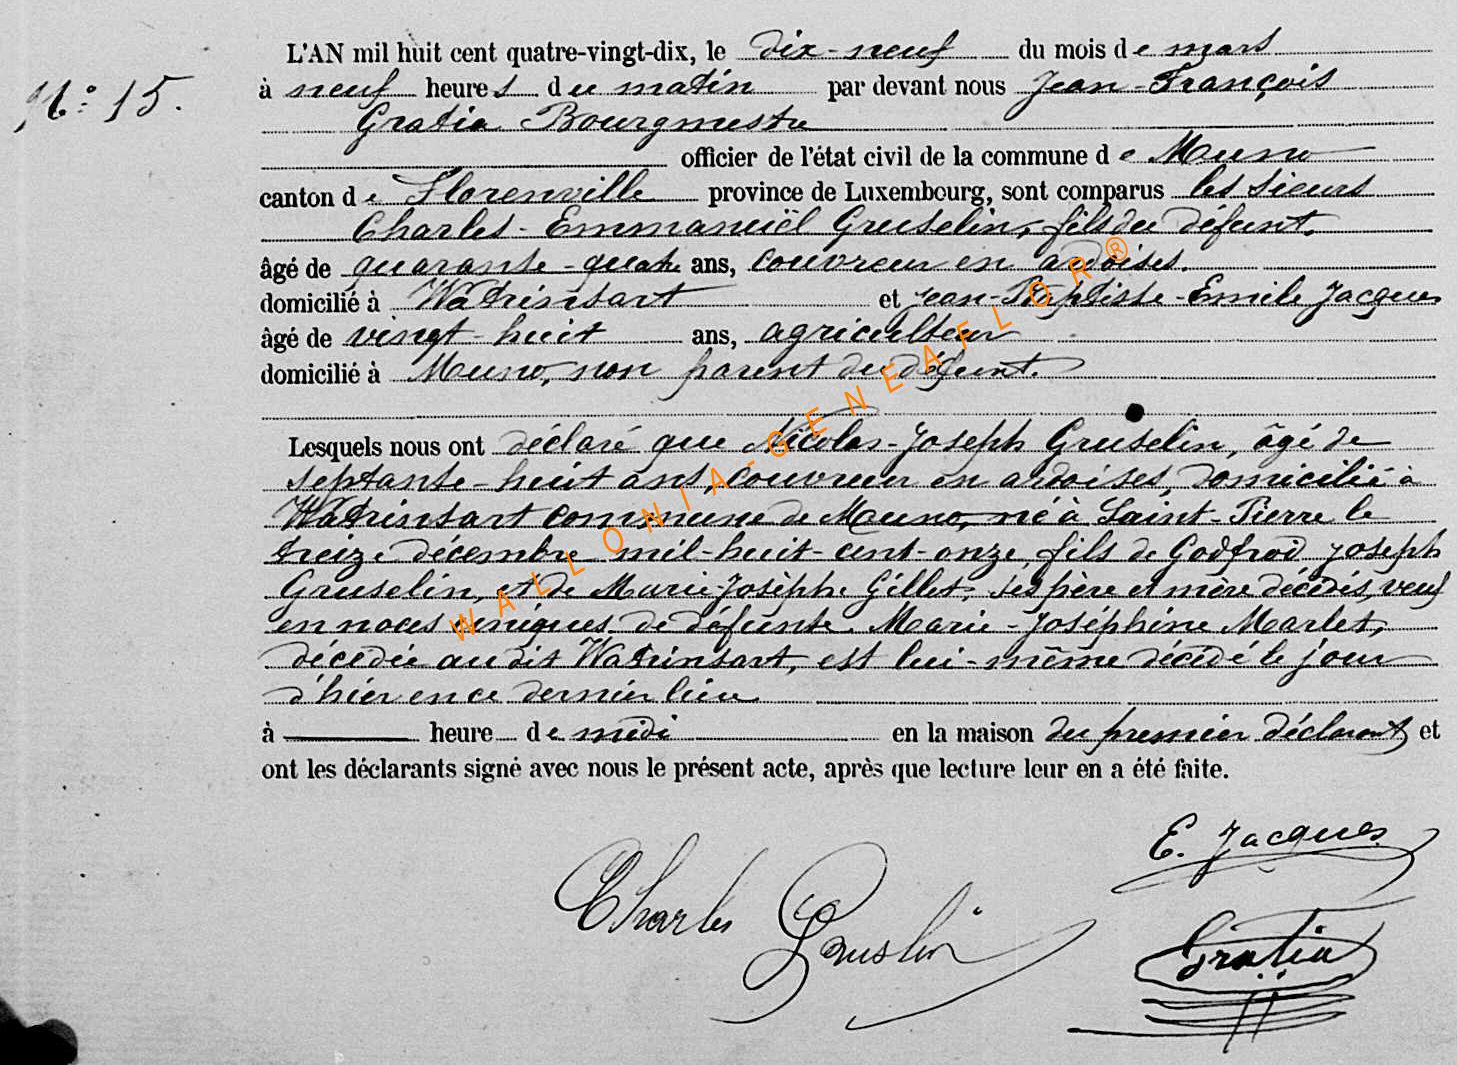 L'AN mil huit cent quatre-vingt-dix, le dix-neuf du mois de mars
N.° 15.
à neuf heures du matin par devant nous Jean-François
Gratia Bourgmestre
officier de l'état civil de la commune de Muno
canton de Florenville province de Luxembourg, sont comparus les sieurs
Charles-Emmanuël Gruselin, fils du défunt,
âgé de quarante-quatre ans, couvreur en ardoises.
domicilié à Watrinsart et Jean-Baptiste-Emile Jacques
âgé de vingt-huit ans, agriculteur
domicilié à Muno, non parent du défunt.
Lesquels nous ont déclaré que Nicolas-Joseph Gruselin, âgé de
septante-huit ans, couvreur en ardoises, domicilié à
Watrinsart commune de Muno, né à Saint-Pierre le
treize décembre mil-huit-cent-onze, fils de Godfroid Joseph
Gruselin, et de Marie-Josèphe Gillet, ses père et mère décédés, veuf
en noces uniques de défunte Marie-Joséphine Marlet,
décédée audit Watrinsart, est lui-même décédé le jour
d'hier en ce dernier lieu
à heure de midi en la maison du premier déclarant et
ont les déclarants signé avec nous le présent acte, après que lecture leur en a été faite.
E. Jacques
Charles Gruslin
Gratia
WALLONIA-GENEAFLOR®